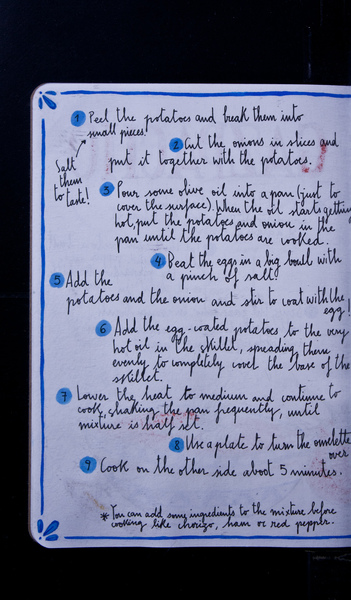 1 Peel the potatoes and break them into
small pieces.
Salt
them
to taste!
2 Cut the onions in slices and
put it together with the potatoes.
3 Pour some olive oil into a pan (just to
cover the surface). When the oil starts getting
hot, put the potatoes and onion in the
pan until the potatoes are cooked.
4 Beat the eggs in a big bowll with
a pinch of salt
5 Add the
potatoes and the onion and stir to coat with the
egg!
6 Add the egg-coated potatoes to the very
hot oil in the skillet, spreading them
evenly to completily cover the base of the
skillet.
7 Lower the heat to medium and continue to
cook, shaking the pan frequently, until
mixture is half set.
8 Use a plate to turn the omelette
over
9 Cook on the other side about 5 minutes.
* You can add some ingredients to the mixture before
cooking like chorizo, ham or red pepper.